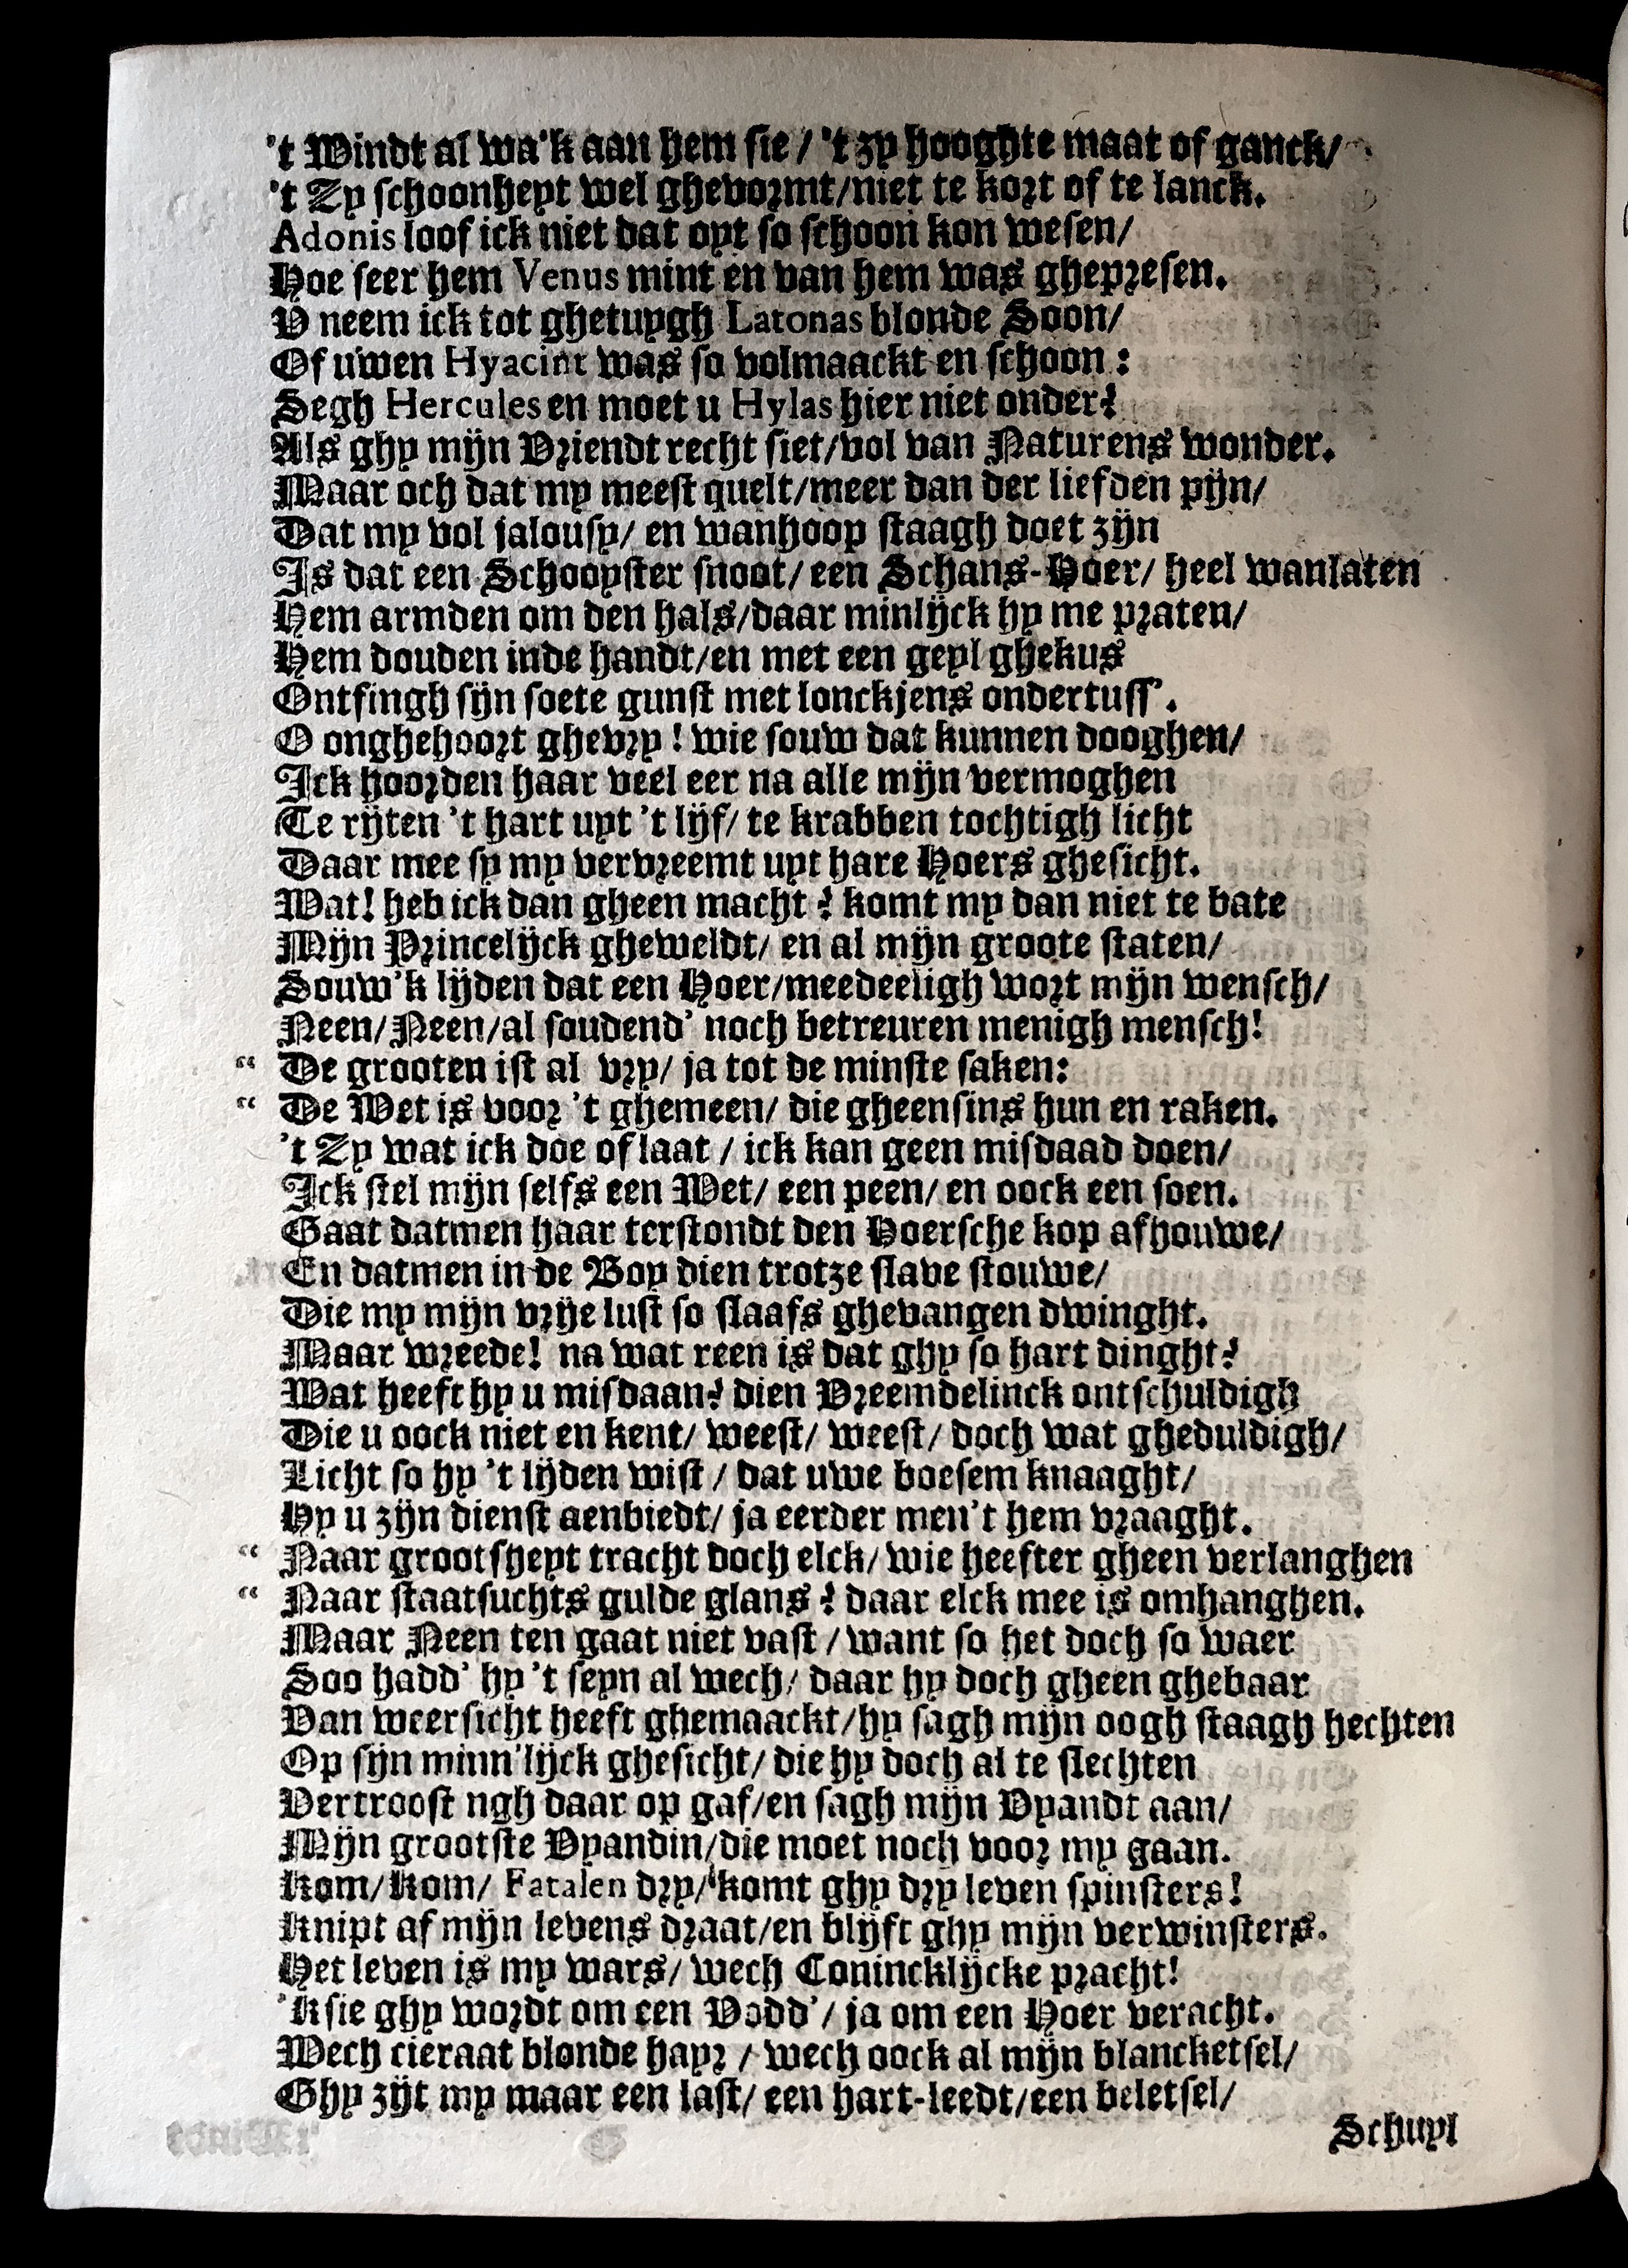 't Windt al wa'k aan hem sie / 't zy hooghte maat of ganck/
't Zy schoonheyt wel ghevormt/niet te kort of te lanck.
Adonis loof ick niet dat oyt so schoon kon wesen/
Hoe seer hem Venus mint en van hem was ghepresen.
V neem ick tot ghetuygh Latonas blonde Soon/
Of uwen Hyacint was so volmaackt en schoon :
Segh Hercules en moet u Hylas hier niet onder?
Als ghy mijn Vriendt recht siet/vol van Naturens wonder.
Maar och dat my meest quelt/meer dan der liefden pijn/
Dat my vol jalousy/ en wanhoop staagh doet zijn
Is dat een Schooyster snoot/ een Schans-Hoer/ heel wanlaten
Hem armden om den hals/daar minlijck hy me praten/
Hem douden inde handt/en met een geyl ghekus
Ontfingh sijn soete gunst met lonckjens ondertuss'.
O onghehoort ghevry ! wie souw dat kunnen dooghen/
Ick hoorden haar veel eer na alle mijn vermoghen
Te rijten 't hart uyt 't lijf/ te krabben tochtigh licht
Daar mee sy my vervreemt uyt hare Hoers ghesicht.
Wat! heb ick dan gheen macht ? komt my dan niet te bate
Mijn Princelijck gheweldt/ en al mijn groote staten/
Souw'k lijden dat een Hoer/meedeeligh wort mijn wensch/
Neen/Neen/al soudend' noch betreuren menigh mensch!
“ De grooten ist al vry/ ja tot de minste saken:
“ De Wet is voor 't ghemeen/ die gheensins hun en raken.
't Zy wat ick doe of laat / ick kan geen misdaad doen/
Ick stel mijn selfs een Wet/ een peen/ en oock een soen.
Gaat datmen haar terstondt den Hoersche kop afhouwe/
En datmen in de Boy dien trotze slave stouwe/
Die my mijn vrije lust so slaafs ghevangen dwinght.
Maar wreede! na wat reen is dat ghy so hart dinght?
Wat heeft hy u misdaan? dien Vreemdelinck ontschuldigh
Die u oock niet en kent/ weest/ weest/ doch wat gheduldigh/
Licht so hy 't lijden wist / dat uwe boesem knaaght/
Hy u zijn dienst aenbiedt/ ja eerder men't hem vraaght.
“ Naar grootsheyt tracht doch elck/ wie heefter gheen verlanghen
“ Naar staatsuchts gulde glans ? daar elck mee is omhanghen.
Maar Neen ten gaat niet vast / want so het doch so waer
Soo hadd' hy 't seyn al wech/ daar hy doch gheen ghebaar
Van weersicht heeft ghemaackt/hy sagh mijn oogh staagh hechten
Op sijn minn'lijck ghesicht/ die hy doch al te slechten
Vertroost ngh daar op gaf/en sagh mijn Vyandt aan/
Mijn grootste Vyandin/die moet noch voor my gaan.
Kom/Kom/ Fatalen dry/ komt ghy dry leven spinsters!
Knipt af mijn levens draat/en blijft ghy mijn verwinsters.
Het leven is my wars/ wech Conincklijcke pracht!
'K sie ghy wordt om een Vodd'/ ja om een Hoer veracht.
Wech cieraat blonde hayr / wech oock al mijn blancketsel/
Ghy zijt my maar een last/ een hart-leedt/een beletsel/
Schuyl